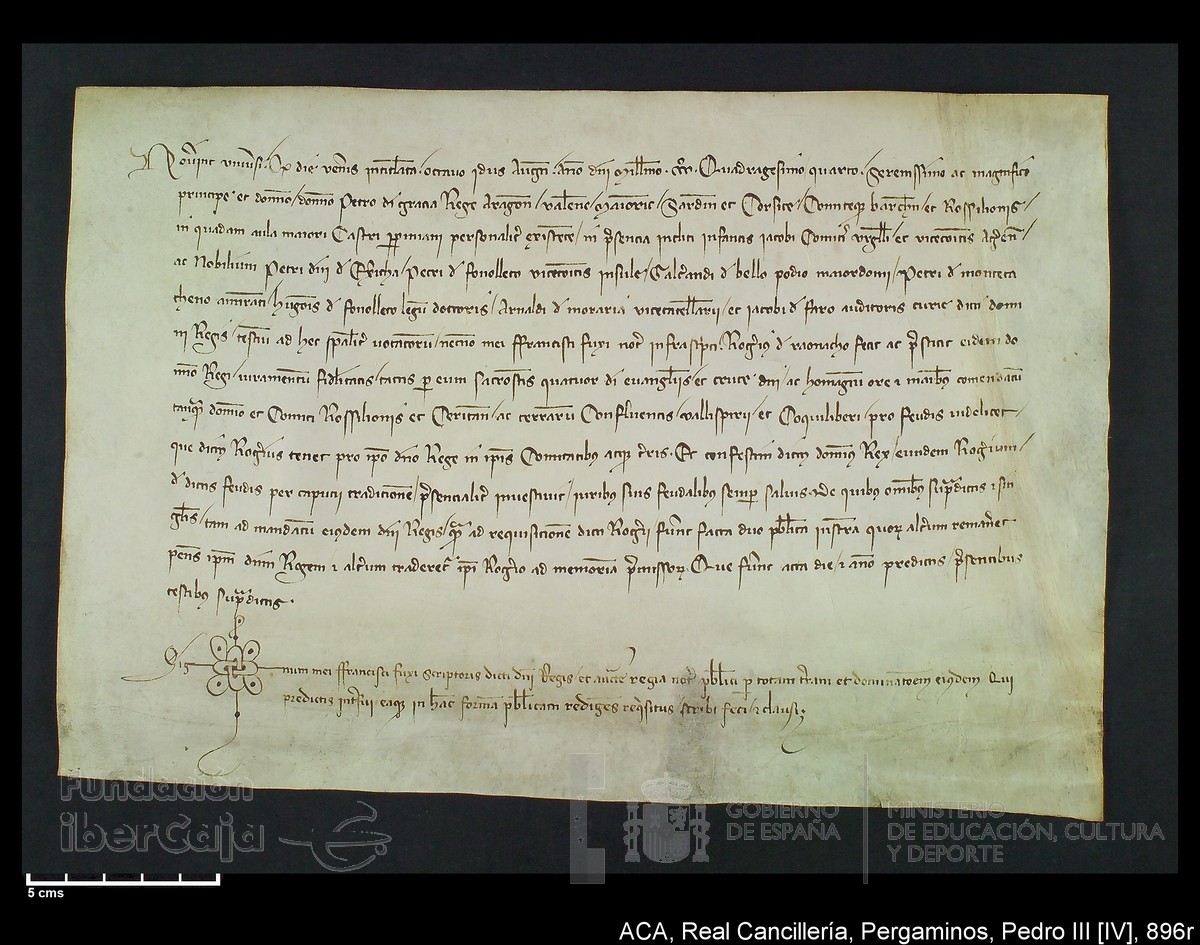 Noverint universi. Qd die veneris intitulata octavo idus Augusti. Año dni Millmo. CCCo. Quadragesimo quarto. Serenissimo ac magnifico
principe et domno / domno Petro di gracia Rege Aragon / Valene / Maioric / Sardin et Corsice / Comiteqz barchn / et Rossilionis /
in quadam aula maiori Castri ppiniani personalit existente / in psencia incliti infantis iacobi Comit urgll / et vicecomitis Agen /
ac Nobilium Petri dni d Exicha / Petri d fonolleto vicecoitis insule / Galcandi d bello podio maiordomi / Petri d monteca
theno amirati / hugonis d fonolleto legu doctoris / Arnaldi d moraria vicecancellarii / et iacobi d faro auditoris curie dicti domi
ni Regis / testiu ad hec spalit vocatoru / necno mei ffrancisci fuxi not infrascpti. Rogius d raonacho fecit ac pstitit eidem do
mno Regi / iuramentu fidlitatis / tactis p eum sacrostis quatuor di evangliis / et cruce dni / ac homagiu ore i maibus comendatu
tanqm domno et Comiti Rossilionis et Ceritan / ac terraru Confluentis / vallispirii / et Coquiliberi / pro feudis videlicet
que dictus Rogius tenet pro ipo dno Rege in ipis Comitatibus atqz tris. Et confestim dictus domnus Rex / eundem Rogium /
d dictis feudis per caputii traditione / psencialit investivit / iuribus suis feudalibus semp salvis. de quibus omibus supradictis i sin
glis / tam ad mandatu eiusdem dni Regis / qm ad requisitione dicti Rogii / funt facta duo pblica instra quor altum remanet
penes ipm dnm Regem i altum traderet ipi Rogio ad memoria pmissor. Que funt acta die / i ano predictis / psentibus
testibus supradictis.
Sig num mei ffrancisci fuxi scriptoris dicti dni Regis / et aucte regia not pblici p totam tram et dominatoem eiusdem Qui
predictis intfui / eaqz in hac forma pblicam redigens reqisitus scribi feci / i clausi.
Fundación
iberCaja
GOBIERNO
DE ESPAÑA
MINISTERIO
DE EDUCACIÓN, CULTURA
Y DEPORTE
5 cms
ACA, Real Cancillería, Pergaminos, Pedro III [IV], 896r